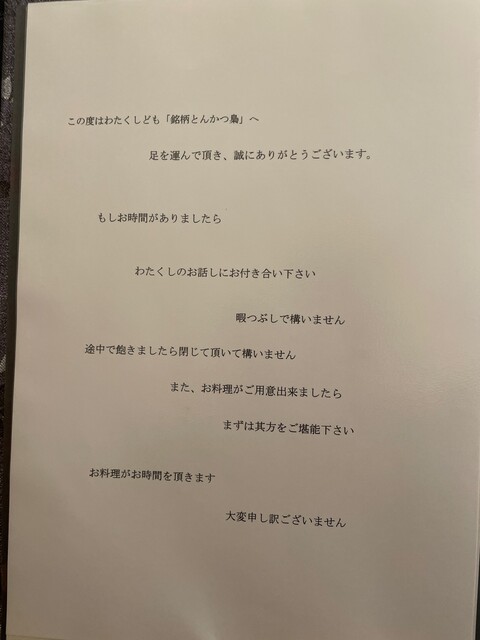 この度はわたくしども「銘柄とんかつ梟」へ
足を運んで頂き、誠にありがとうございます。
もしお時間がありましたら
わたくしのお話しにお付き合い下さい
暇つぶしで構いません
途中で飽きましたら閉じて頂いて構いません
また、お料理がご用意出来ましたら
まずは其方をご堪能下さい
お料理がお時間を頂きます
大変申し訳ございません